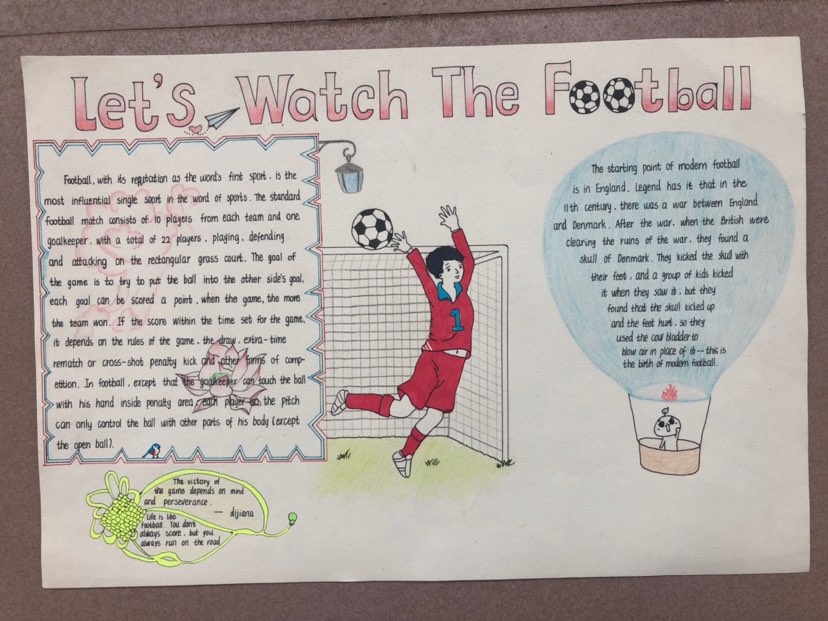 Let's Watch The Football
Football, with its regutation as the word's first sport, is the
most influential single sport in the word of sports. The standard
football match consists of 10 players from each team and one
goalkeeper, with a total of 22 players, playing, defending
and attacking on the rectangular grass court. The goal of
the game is to try to put the ball into the other side's goal,
each goal can be scored a point, when the game, the more
the team won. If the score within the time set for the game,
it depends on the rules of the game, the draw, extra-time
rematch or cross-shot penalty kick and other forms of comp-
etition. In football, except that the goalkeeper can touch the ball
with his hand inside penalty area, each player on the pitch
can only control the ball with other parts of his body (except
the open ball).
The victory of
the game depends on mind
and perseverance.
— dijiana
Life is like
football. You don't
always score, but you
always run on the road.
1
The starting point of modern football
is in England. Legend has it that in the
11th century, there was a war between England
and Denmark. After the war, when the British were
clearing the ruins of the war, they found a
skull of Denmark. They kicked the skull with
their feet, and a group of kids kicked
it when they saw it, but they
found that the skull kicked up
and the feet hurt, so they
used the cow bladder to
blow air in place of it -- this is
the birth of modern football.